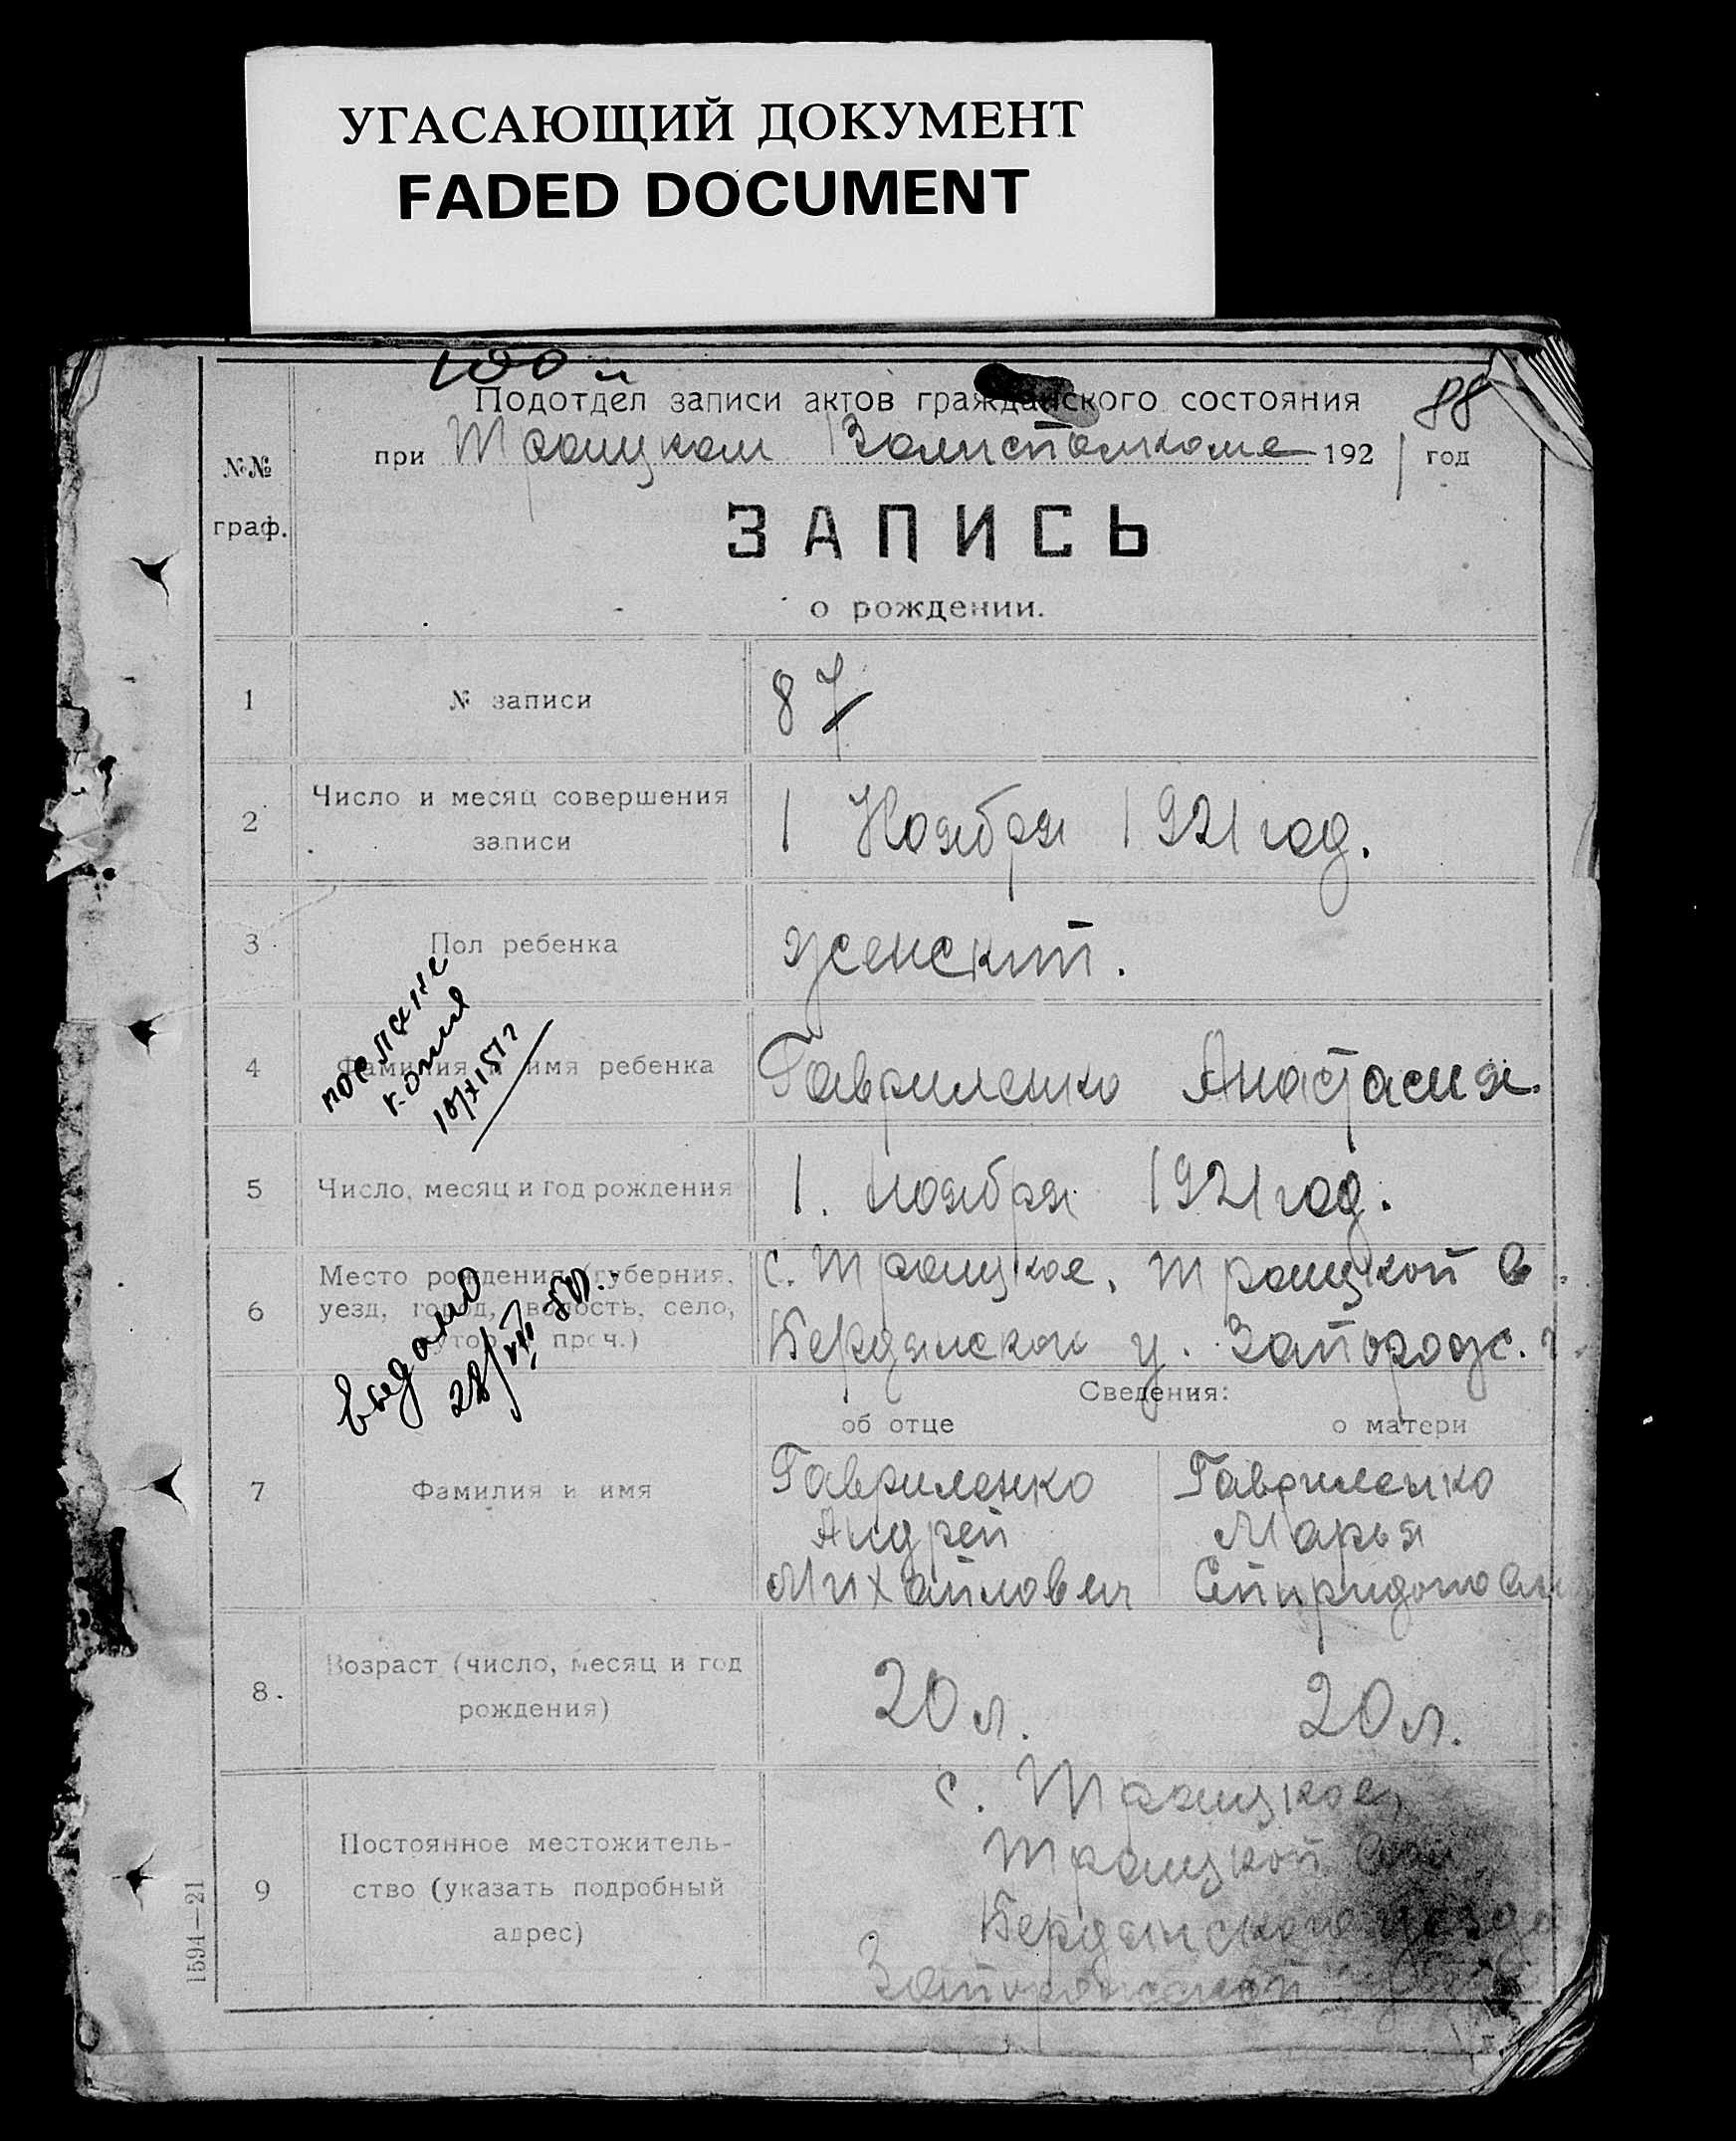 УГАСАЮЩИЙ ДОКУМЕНТ
FADED DOCUMENT
100
88
Подотдел записи актов гражданского состояния
при Троицком 192 1 год
№№
граф.
ЗАПИСЬ
о рождении.
1 № записи 87
2 Число и месяц совершения
записи
1 Ноября 1921 год.
3 Пол ребенка женский.
4 Фамилия и имя ребенка Гавриленко Анастасия.
5 Число, месяц и год рождения 1. ноября 1921 год.
6 Место рождения (губерния,
уезд, город, волость, село,
хутор и проч.)
с. Троицкое, Троицкой в.
Бердянского у. Запорож. г.
Сведения:
об отце о матери
7 Фамилия и имя
Гавриленко Гавриленко
Андрей Марья
Михайлович
8. Возраст (число, месяц и год
рождения)
20 л. 20 л.
9 Постоянное местожитель-
ство (указать подробный
адрес)
с. Троицкое,
Троицкой
Бердянского уезда
Запорожской
копия
выдано
1594—21